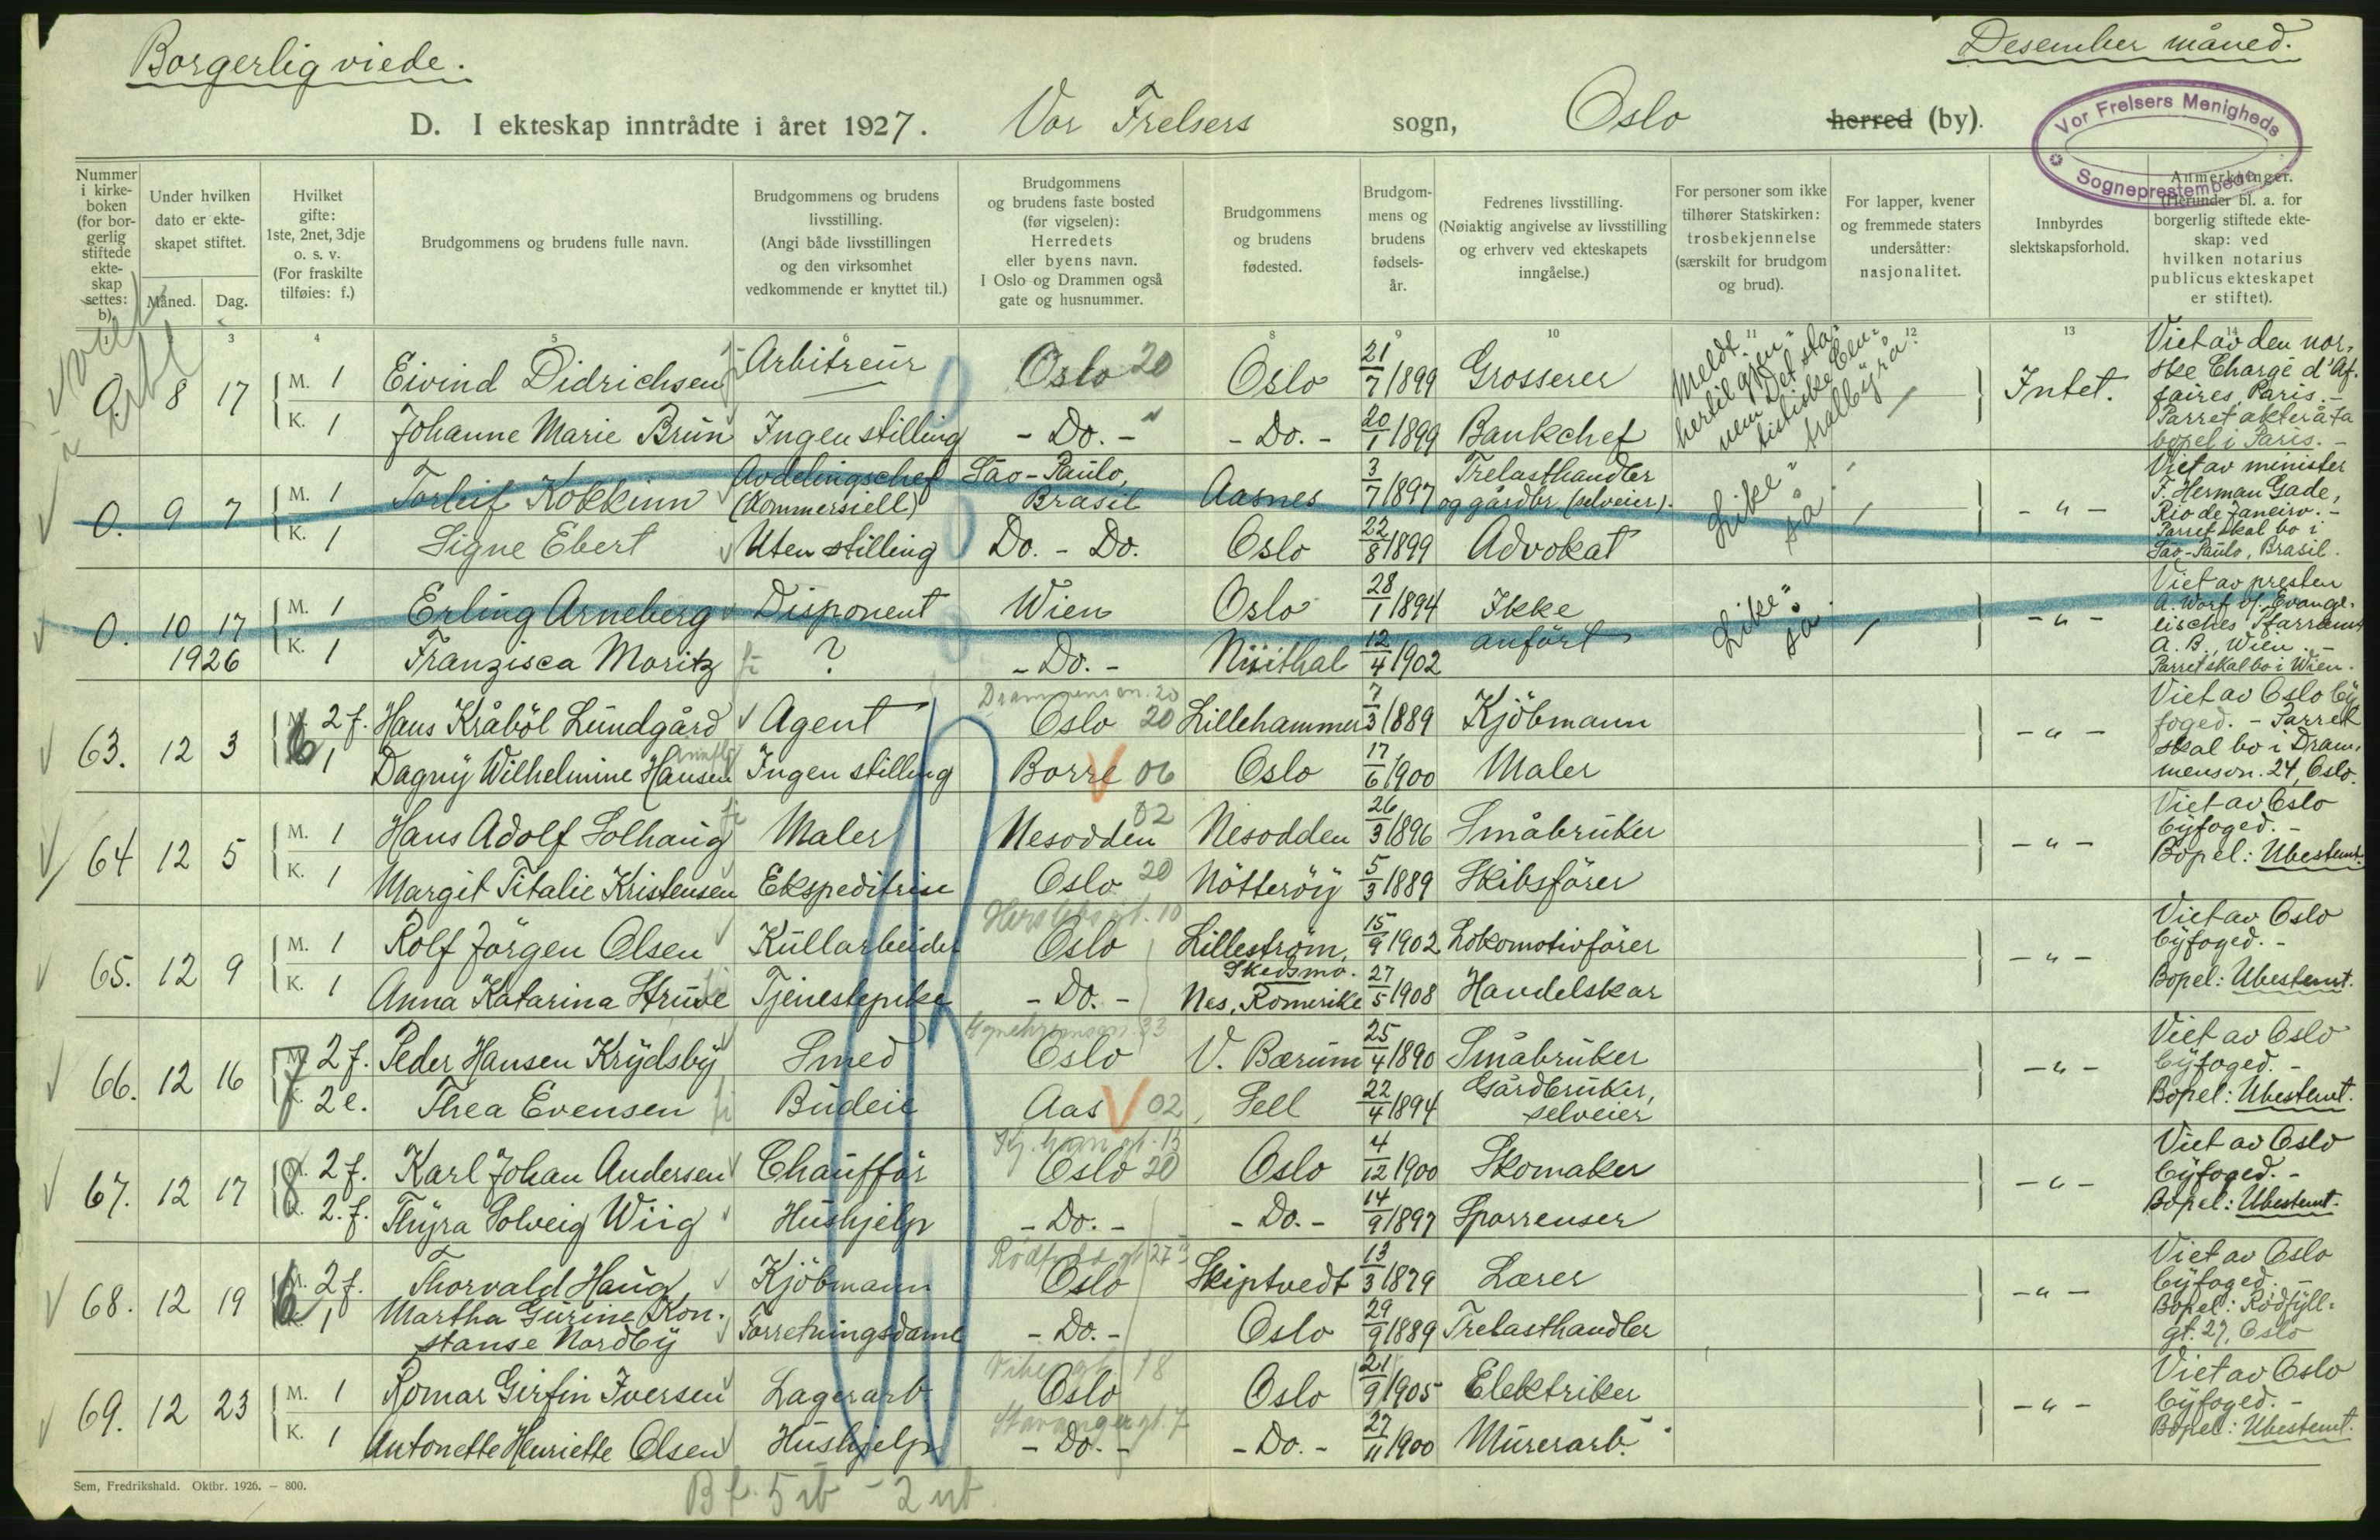 Borgerlig viede.
Desember måned.
D. I ekteskap inntrådte i året 1927. Vor Frelsers sogn, Oslo herred (by).
Vor Frelsers Menigheds Sogneprestembede
Nummer i kirkeboken (for borgerlig stiftede ekteskap settes: b).
Under hvilken dato er ekteskapet stiftet.
Måned. Dag.
Hvilket gifte: 1ste, 2net, 3dje o. s. v. (For fraskilte tilføies: f.)
Brudgommens og brudens fulle navn.
Brudgommens og brudens livsstilling. (Angi både livsstillingen og den virksomhet vedkommende er knyttet til.)
Brudgommens og brudens faste bosted (før vigselen): Herredets eller byens navn. I Oslo og Drammen også gate og husnummer.
Brudgommens og brudens fødested.
Brudgommens og brudens fødselsår.
Fedrenes livsstilling. (Nøiaktig angivelse av livsstilling og erhverv ved ekteskapets inngåelse.)
For personer som ikke tilhører Statskirken: trosbekjennelse (særskilt for brudgom og brud).
For lapper, kvener og fremmede staters undersåtter: nasjonalitet.
Innbyrdes slektskapsforhold.
Anmerkninger. (Herunder bl. a. for borgerlig stiftede ekteskap: ved hvilken notarius publicus ekteskapet er stiftet).
3 4 5 8 9 10 11 12 13 14
0. 8 17 M. 1 Eivind Didrichsen Arbitreur Oslo 20 Oslo 21/7 1899 Grosserer
K. 1 Johanne Marie Brun Ingen stilling - Do. - " - Do. - 20/1 1899 Bankchef
Meldt hertil gjennem Det statistiske Centralbyrå.
Intet.
Viet av den norske Chargé d'Affaires, Paris. - Parret akter å ta bopel i Paris. -
0. 9 7 M. 1 Torleif Kokkinn Avdelingschef (Kommersiell) São-Paulo, Brasil Aasnes 3/7 1897 Trelasthandler og gårdbr. (selveier).
K. 1 Signe Ebert Uten stilling Do. - Do. Oslo 22/8 1899 Advokat
Likeså - " -
Viet av minister F. Herman Gade, Rio de Janeiro. - Parret skal bo i São-Paulo, Brasil.
0. 10 17 1926 M. 1 Erling Arneberg Disponent Wien Oslo 28/1 1894 Ikke anført
K. 1 Franzisca Moritz ? - Do. - 12/4 1902
Likeså - " -
Viet av presten Evangelisches Pfarramt A. B., Wien. - Parret skal bo i Wien.
63. 12 3 2 f. Hans Kråbøl Lundgård Agent Oslo 20 Lillehammer 7/3 1889 Kjøbmann
1 Dagny Wilhelmine Hansen Ingen stilling Borre 06 Oslo 17/6 1900 Maler
- " -
Viet av Oslo byfoged. - Parret skal bo i Drammensvn. 24, Oslo.
64 12 5 M. 1 Hans Adolf Solhaug Maler Nesodden 02 Nesodden 26/3 1896 Småbruker
K. 1 Margit Titalie Kristensen Ekspeditrise Oslo 20 Nøtterøy 5/3 1889 Skibsfører
- " -
Viet av Oslo byfoged. - Bopel: Ubestemt.
65. 12 9 M. 1 Rolf Jørgen Olsen Kullarbeider Oslo Lillestrøm, Skedsmo. 15/9 1902 Lokomotivfører
K. 1 Anna Katarina Struve Tjenestepike - Do. - Nes, Romerike 27/5 1908 Handelskar
- " -
Viet av Oslo byfoged. - Bopel: Ubestemt.
66. 12 16 2 f. Peder Hansen Krydsby Smed Oslo V. Bærum 25/4 1890 Småbruker
2 e. Thea Evensen Budeie Aas 02 Sell 22/4 1894 Gårdbruker, selveier
- " -
Viet av Oslo byfoged. - Bopel: Ubestemt.
67. 12 17 2 f. Karl Johan Andersen Chauffør Oslo 20 Oslo 4/12 1900 Skomaker
2. f. Thyra Solveig Wiig Hushjelp - Do. - - Do. - 14/9 1897 Sporrenser
- " -
Viet av Oslo byfoged. - Bopel: Ubestemt.
68. 12 19 2 f. Thorvald Haug Kjøbmann Oslo Skiptvedt 13/3 1879 Lærer
1 Martha Gurine Konstanse Nordby Forretningsdame - Do. - Oslo 29/9 1889 Trelasthandler
- " -
Viet av Oslo byfoged. - Bopel: Rødfyllgt. 27, Oslo
69. 12 23 M. 1 Romar Girfin Iversen Lagerarb. Oslo Oslo 21/9 1905 Elektriker
K. 1 Antonette Henriette Olsen Hushjelp - Do. - - Do. - 27/11 1900 Murerarb.
- " -
Viet av Oslo byfoged. - Bopel: Ubestemt.
Sem, Fredrikshald. Oktbr. 1926. - 800.